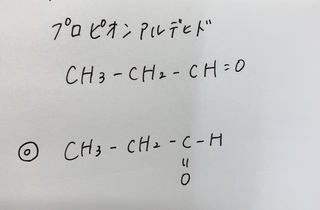 プロピオンアルデヒド
CH3-CH2-CH=O
◎ CH3-CH2-C-H
=
O